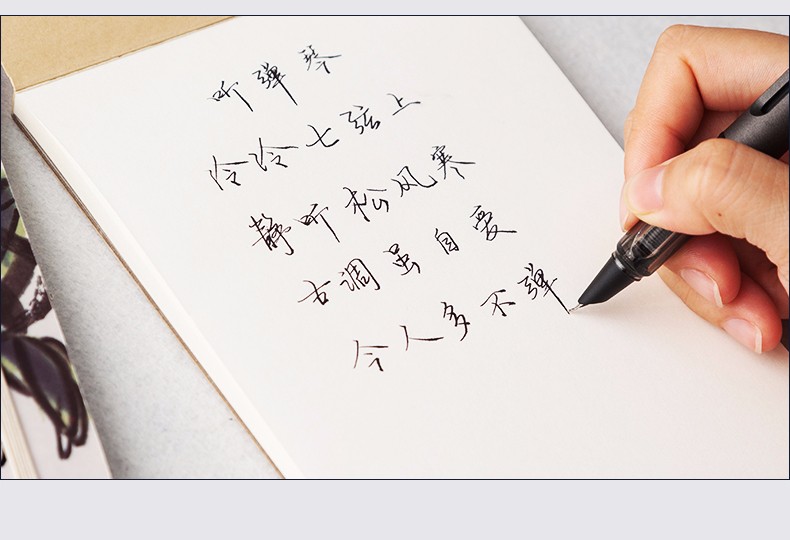 听弹琴
泠泠七弦上
静听松风寒
古调虽自爱
今人多不弹